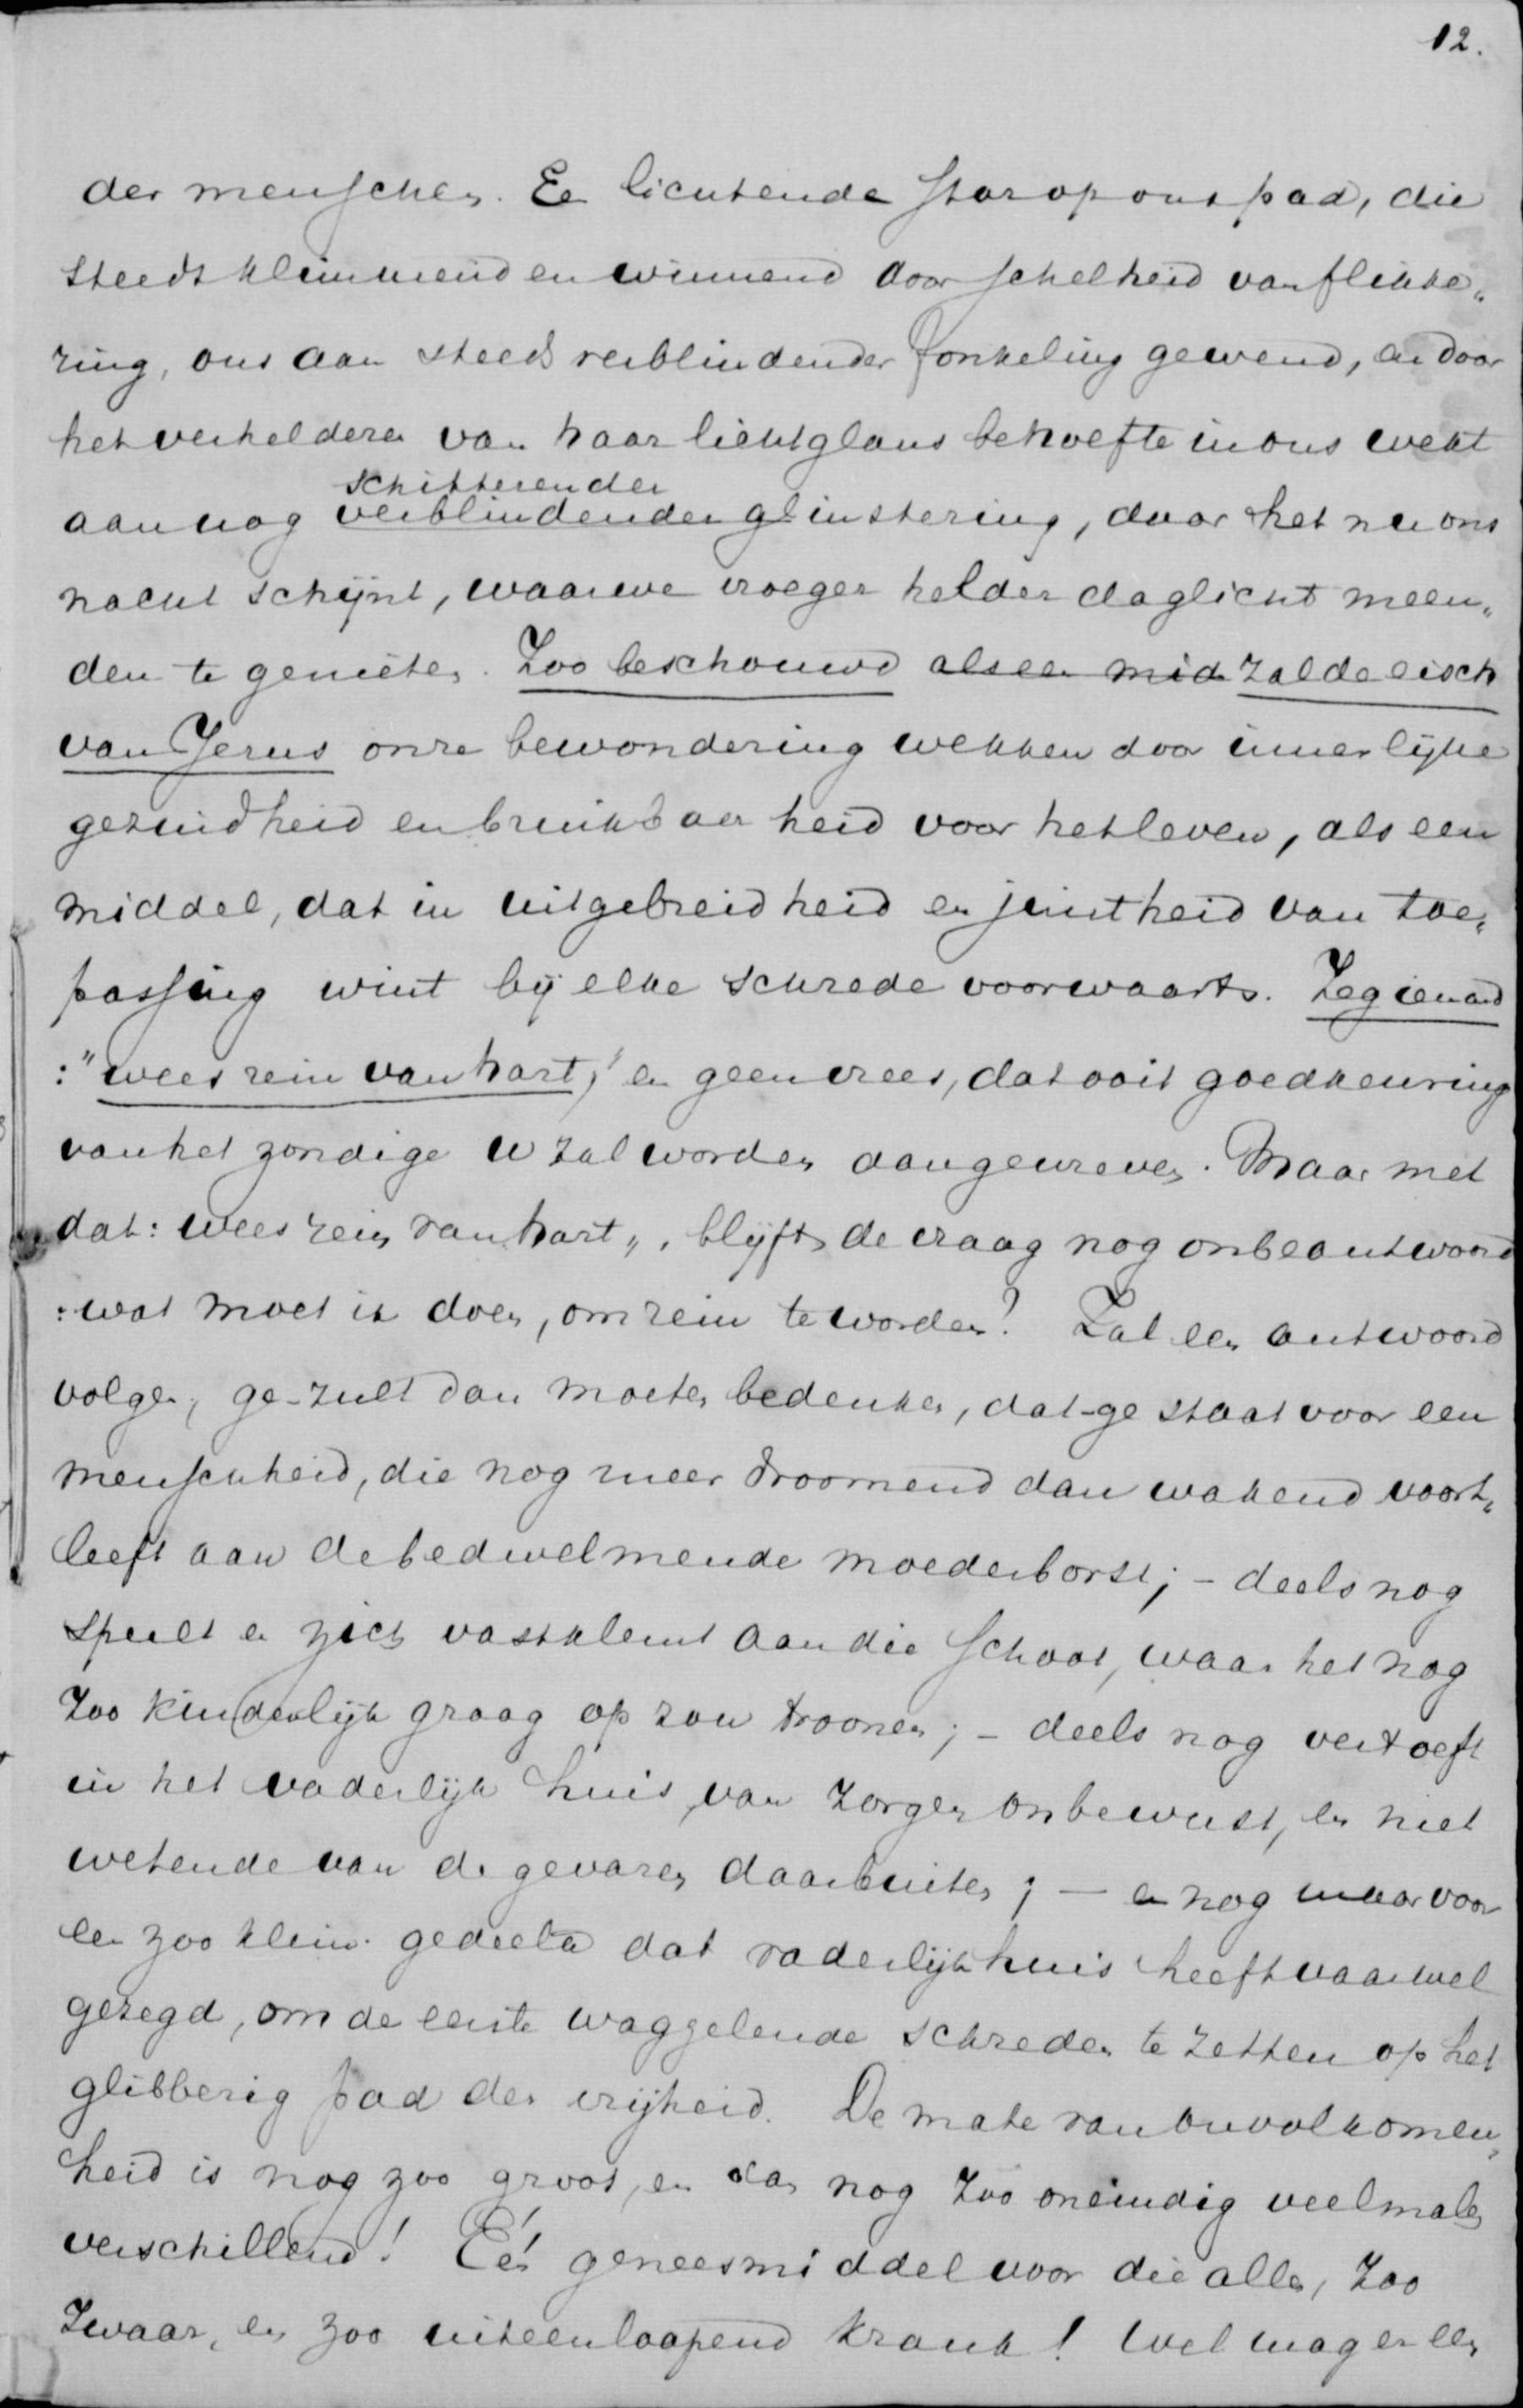 12.
der menschen. Een lichtende star op ons pad, die
steeds klimmend en winnend door schelheid van flikke„
ring, ons aan steeds verblindender fonkeling gewend, en door
het verhelderen van haar lichtglans behoefte in ons wekt
schitterender
aan nog verblindender glinstering, daar het nu ons
nacht schijnt, waar we vroeger helder daglicht meen„
den te genieten. Zoo beschouwd als een mid zal de eisch
van Jezus onze bewondering wekken door innerlijke
gezindheid en bruikbaarheid voor het leven, als een
middel, dat in uitgebreidheid en juistheid van toe„
passing wint bij elke schrede voorwaarts. Zeg iemand
:"wees rein van hart," en geen vrees, dat ooit goedkeuring
van het zondige u zal worden aangewreven. Maar met
dat: wees rein van hart„, blijft de vraag nog onbeantwoord
: wat moet ik doen, om rein te worden? Zal een antwoord
volgen, ge-zult dan moeten bedenken, dat-ge staat voor een
menschheid, die nog meer droomend dan wakend voort„
leeft aan de bedwelmende moederborst; - deels nog
speelt en zich vastklemt aan die schoot, waar het nog
zoo kinderlijk graag op zou troonen; - deels nog vertoeft
in het vaderlijk huis, van zorgen onbewust, en niet
wetende van de gevaren daarbuiten; — en nog maar voor
een zoo klein gedeelte dat vaderlijk huis heeft vaarwel
gezegd, om de eerste waggelende schreden te zetten op het
glibberig pad der vrijheid. De mate van onvolkomen„
heid is nog zoo groot, en dan nog zoo oneindig veelmalen
verschillend! Eén geneesmiddel voor die allen, zoo
zwaar, en zoo uiteenloopend krank! Wel mag er een